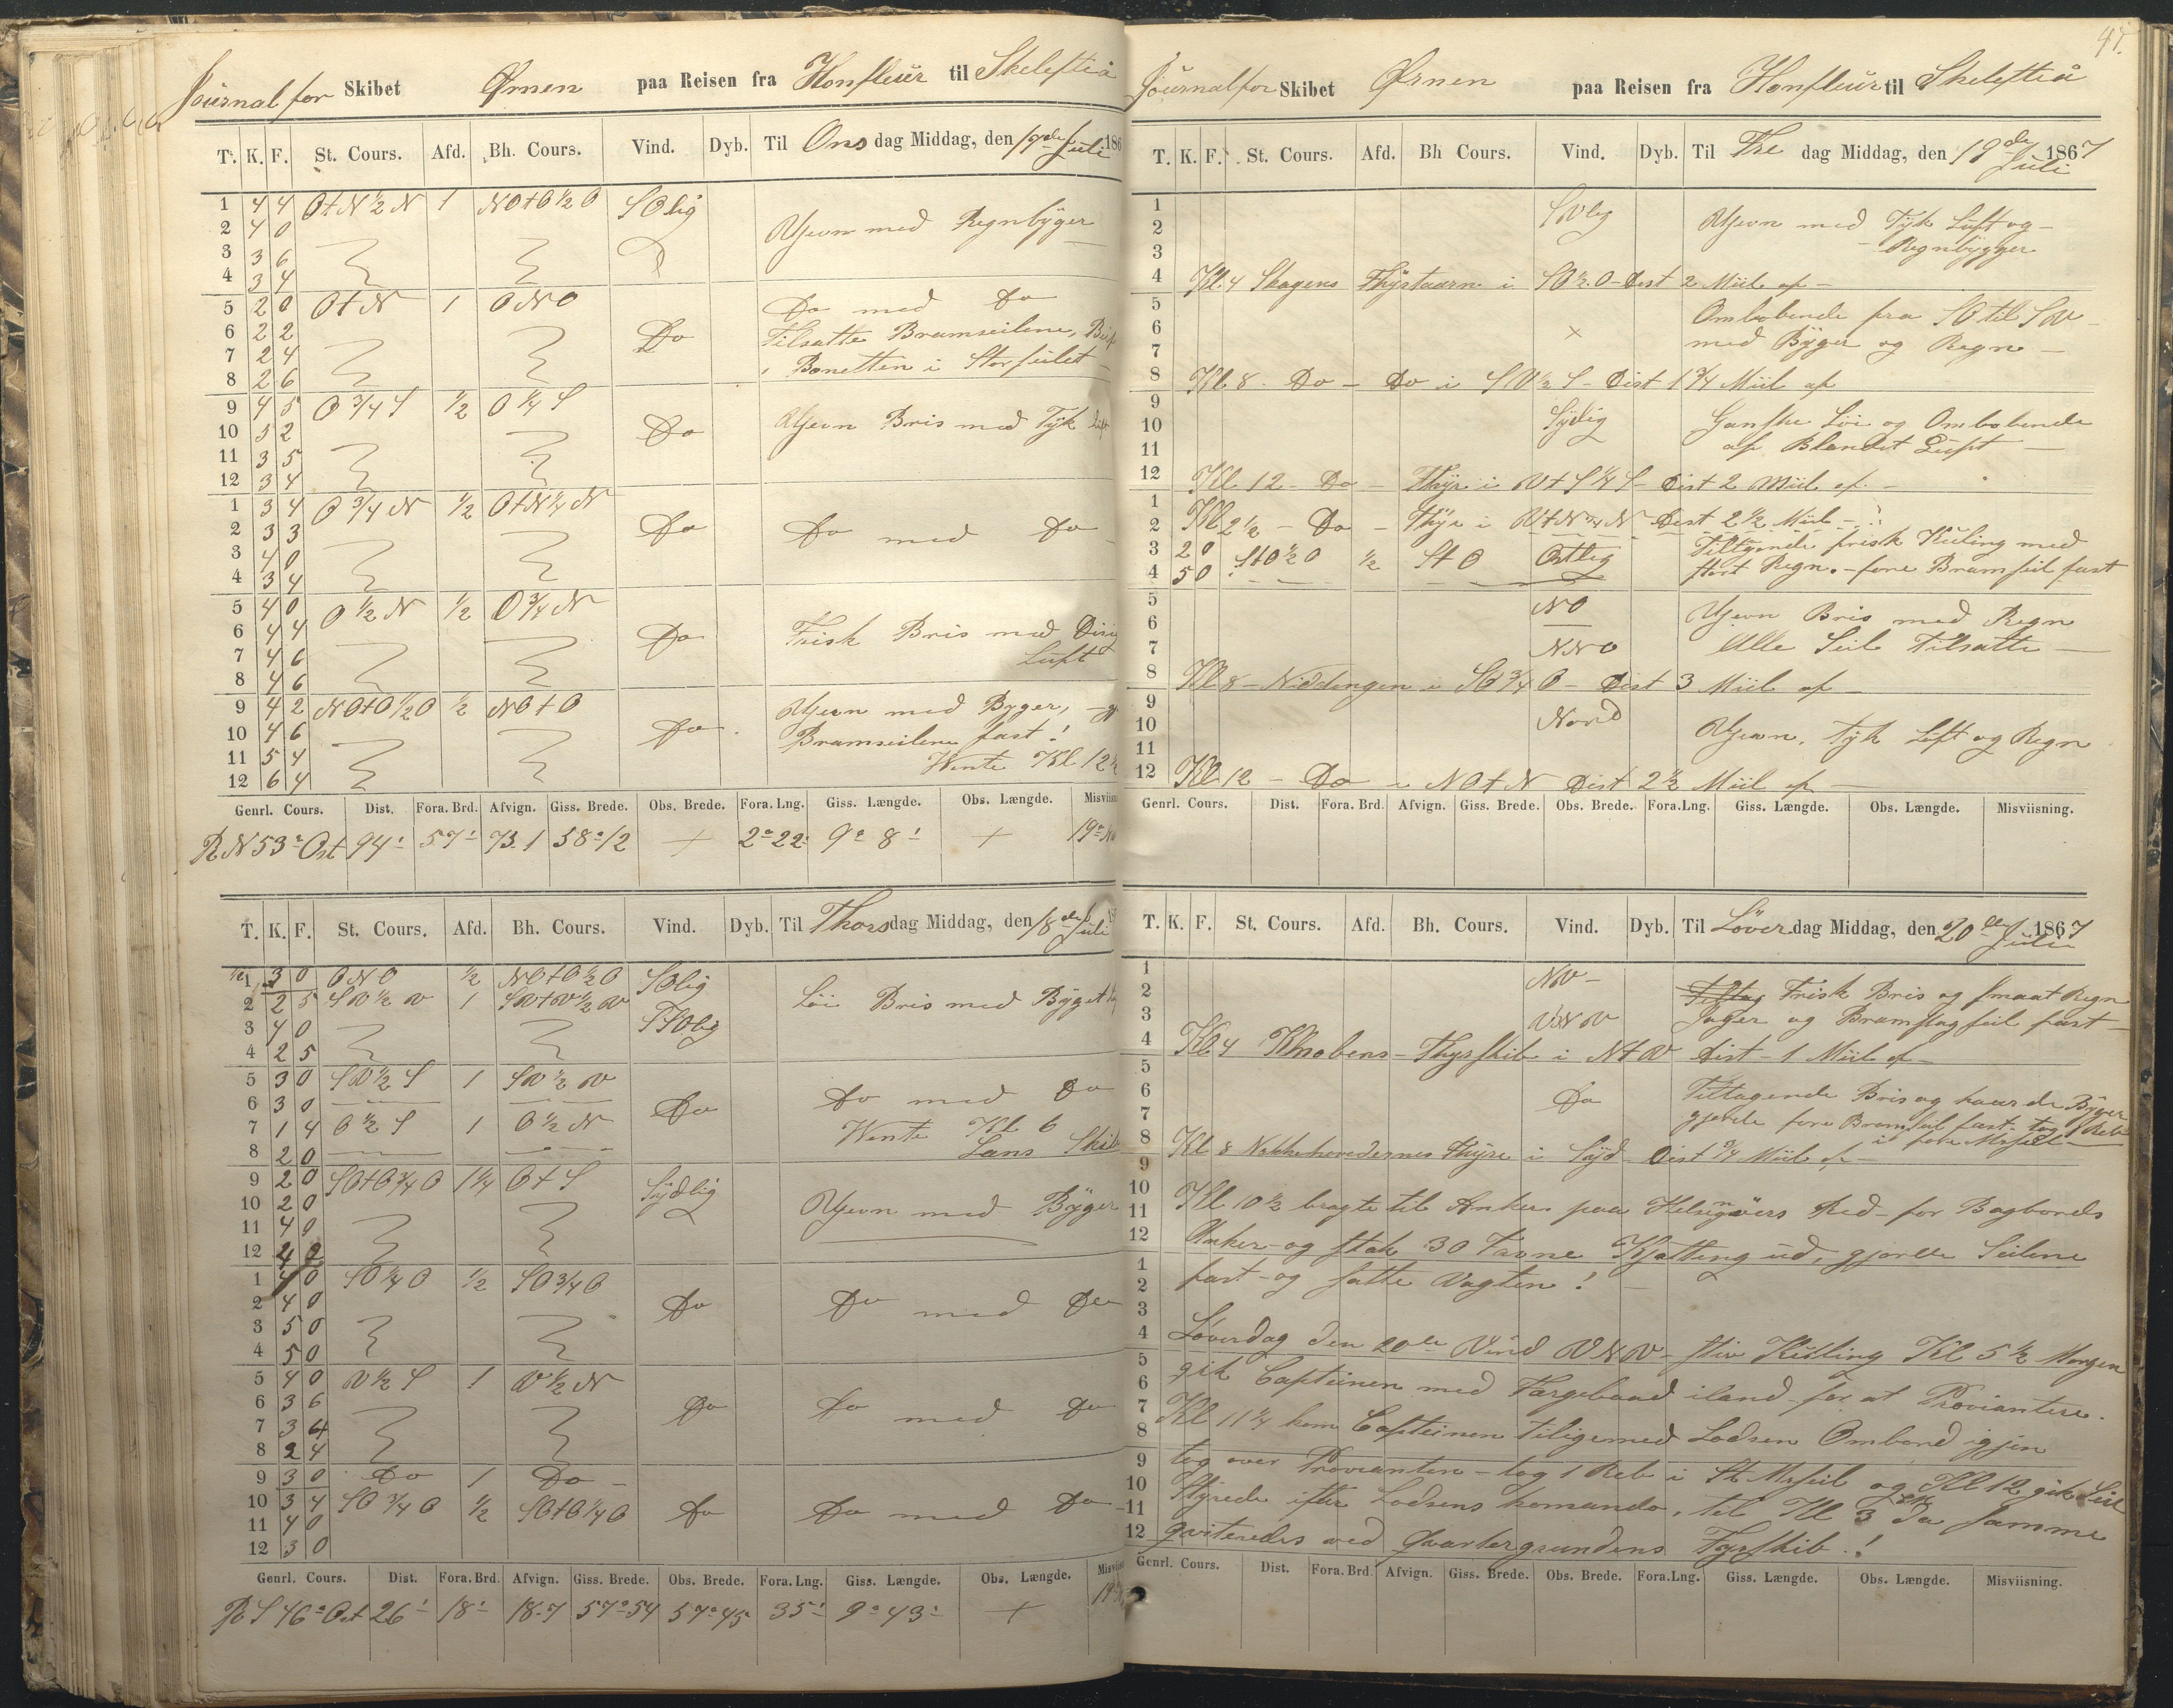 Journal for Skibet Ørnen paa Reisen fra Honfleur til Skelefteå
T. K. F. St. Cours. Afd. Bh. Cours. Vind. Dyb. Til Onsdag Middag, den 17de Juli 186
1 4 4 O t N ½ N 1 NO t O ½ O SOlig
2 4 0 Ujevn med Regnbyger
3 3 6
4 3 4
5 2 0 O t N 1 ONO Do med Do
6 2 2 Do Tilsatte Bramseilene,
7 2 4 Bonetten i Storseilet
8 2 6
9 4 5 O ¾ S ½ O ¼ S
10 5 2 Do Ujevn Bris med Tyk Luft
11 3 5
12 3 4
1 3 4 O ¾ N ½ O t N ¼ N
2 3 3 Do Do med Do
3 4 0
4 3 4
5 4 0 O ½ N ½ O ¾ N
6 4 4 Do Frisk Bris med
7 4 6 Luft
8 4 6
9 4 2 NO t O ½ O ½ NO t O Ujevn med Byger,
10 4 6 Do Bramseilene fast!
11 5 4 Vente Kl 12 ½
12 6 4
Genrl. Cours. Dist. Fora. Brd. Afvign. Giss. Brede. Obs. Brede. Fora. Lng. Giss. Længde. Obs. Længde. Misviisn
R N 53° Ost 94' 57' 73.1 58° 12 + 2° 22' 9° 8' + 19°
T. K. F. St. Cours. Afd. Bh. Cours. Vind. Dyb. Til Thorsdag Middag, den 18de Juli
1 3 0 ONO ½ NO t O ½ O SOlig
2 2 5 SV ½ V 1 SV t V ½ V Løi Bris med Byget
3 4 0 SSOlig
4 2 5
5 3 0 SV ½ S 1 SV ½ V
6 3 0 Do Do med Do
7 1 4 O ½ S 1 O ½ N Vente Kl 6
8 2 0 Lans Skib
9 2 0 SO t O ¾ O 1 ¼ O t S Sydlig
10 2 0 Ujevn med Byger
11 4 0
12 4 2
1 4 0 SO ¼ O ½ SO ¾ O
2 4 0 Do Do med Do
3 5 0
4 5 0
5 4 0 V ½ S 1 V ½ N
6 3 6 Do Do med Do
7 3 4
8 2 4
9 3 0 Do 1 Do
10 3 4 SO ¾ O ½ SO t O ¼ O Do Do med Do
11 4 0
12 3 0
Genrl. Cours. Dist. Fora. Brd. Afvign. Giss. Brede. Obs. Brede. Fora. Lng. Giss. Længde. Obs. Længde. Misviis
R S 46° Ost 26' 18' 18.7 57° 54 57° 45 35' 9° 43' +
47.
Journal for Skibet Ørnen paa Reisen fra Honfleur til Skelefteå
T. K. F. St. Cours. Afd. Bh Cours. Vind. Dyb. Til Fredag Middag, den 19de Juli 1867
1 SVlig Ujevn med Tyk Luft og
2 Regnbygger
3
4 Kl 4 Skagens Fhyrtaarn i SO ½ O - Dist 2 Miil af -
5 Omløbende fra SO til SV
6 × med Byger og Regn -
7
8 Kl 8 - Do - Do i SV ½ S - Dist 1 ¾ Miil af
9 Sydlig Ganske Løi og Omløbende
10 af Blandet Luft -
11
12 Kl 12 - Do - Fhyr i V t S ¼ S - Dist 2 Miil af -
1 Kl 2 ½ - Do - Fhyr i V t N ¾ N - Dist 2 ½ Miil -
2 Tiltagende frisk Kuling med
3 2 0 S t O ½ O ½ S t O Ostlig stort Regn. - fore Bramseil fast
4 5 0
5 NO Ujevn Bris med Regn
6 Alle Seil Tilsatte -
7 NNO
8 Kl 8 - Niddingen i SO ¾ O - Dist 3 Miil af -
9 Nord
10 Ujevn, Tyk Luft og Regn
11
12 Kl 12 - Do i NO t N Dist 2 ½ Miil af -
Genrl. Cours. Dist. Fora. Brd. Afvign. Giss. Brede. Obs. Brede. Fora. Lng. Giss. Længde. Obs. Længde. Misviisning.
T. K. F. St. Cours. Afd. Bh. Cours. Vind. Dyb. Til Løverdag Middag, den 20de Juli 1867
1 NV - Tiltag Frisk Bris og smaat Regn
2 Jager og Bramstagseil fast -
3 VNV
4 Kl 4 Knobens - Fhyrskib i N t V Dist - 1 Miil af -
5 Tiltagende Bris og haarde Byger
6 Do gjorde fore Bramseil fast. tog 1 Reb
7 i fore Mrsseil
8 Kl 8 Nakkehovedernes Fhyre i Syd Dist ¾ Miil af -
9
10 Kl 10 ½ bragte til Ankers paa Helsingøers Red - for Bagbords
11 Anker og stak 30 Favne Kjætting ud, gjorde Seilene
12 fast - og satte Vagten!
1
2
3 Løverdag den 20de Vind VNV - stiv Kuling Kl 5 ½ Morgen
4 gik Capteinen med Færgebaad iland for at Proviantere.
5 Kl 11 ¼ kom Capteinen tiligemed Lodsen Ombord igjen
6 tog over Provianten - tog 1 Reb i St. Mrsseil og Kl 12 gik Seil
7 Styrede efter Lodsens komando, til Kl 3 Em da samme
8 qviteredes ved Qvartergrundens Fyrskib.!
9
10
11
12
Genrl. Cours. Dist. Fora. Brd. Afvign. Giss. Brede. Obs. Brede. Fora. Lng. Giss. Længde. Obs. Længde. Misviisning.